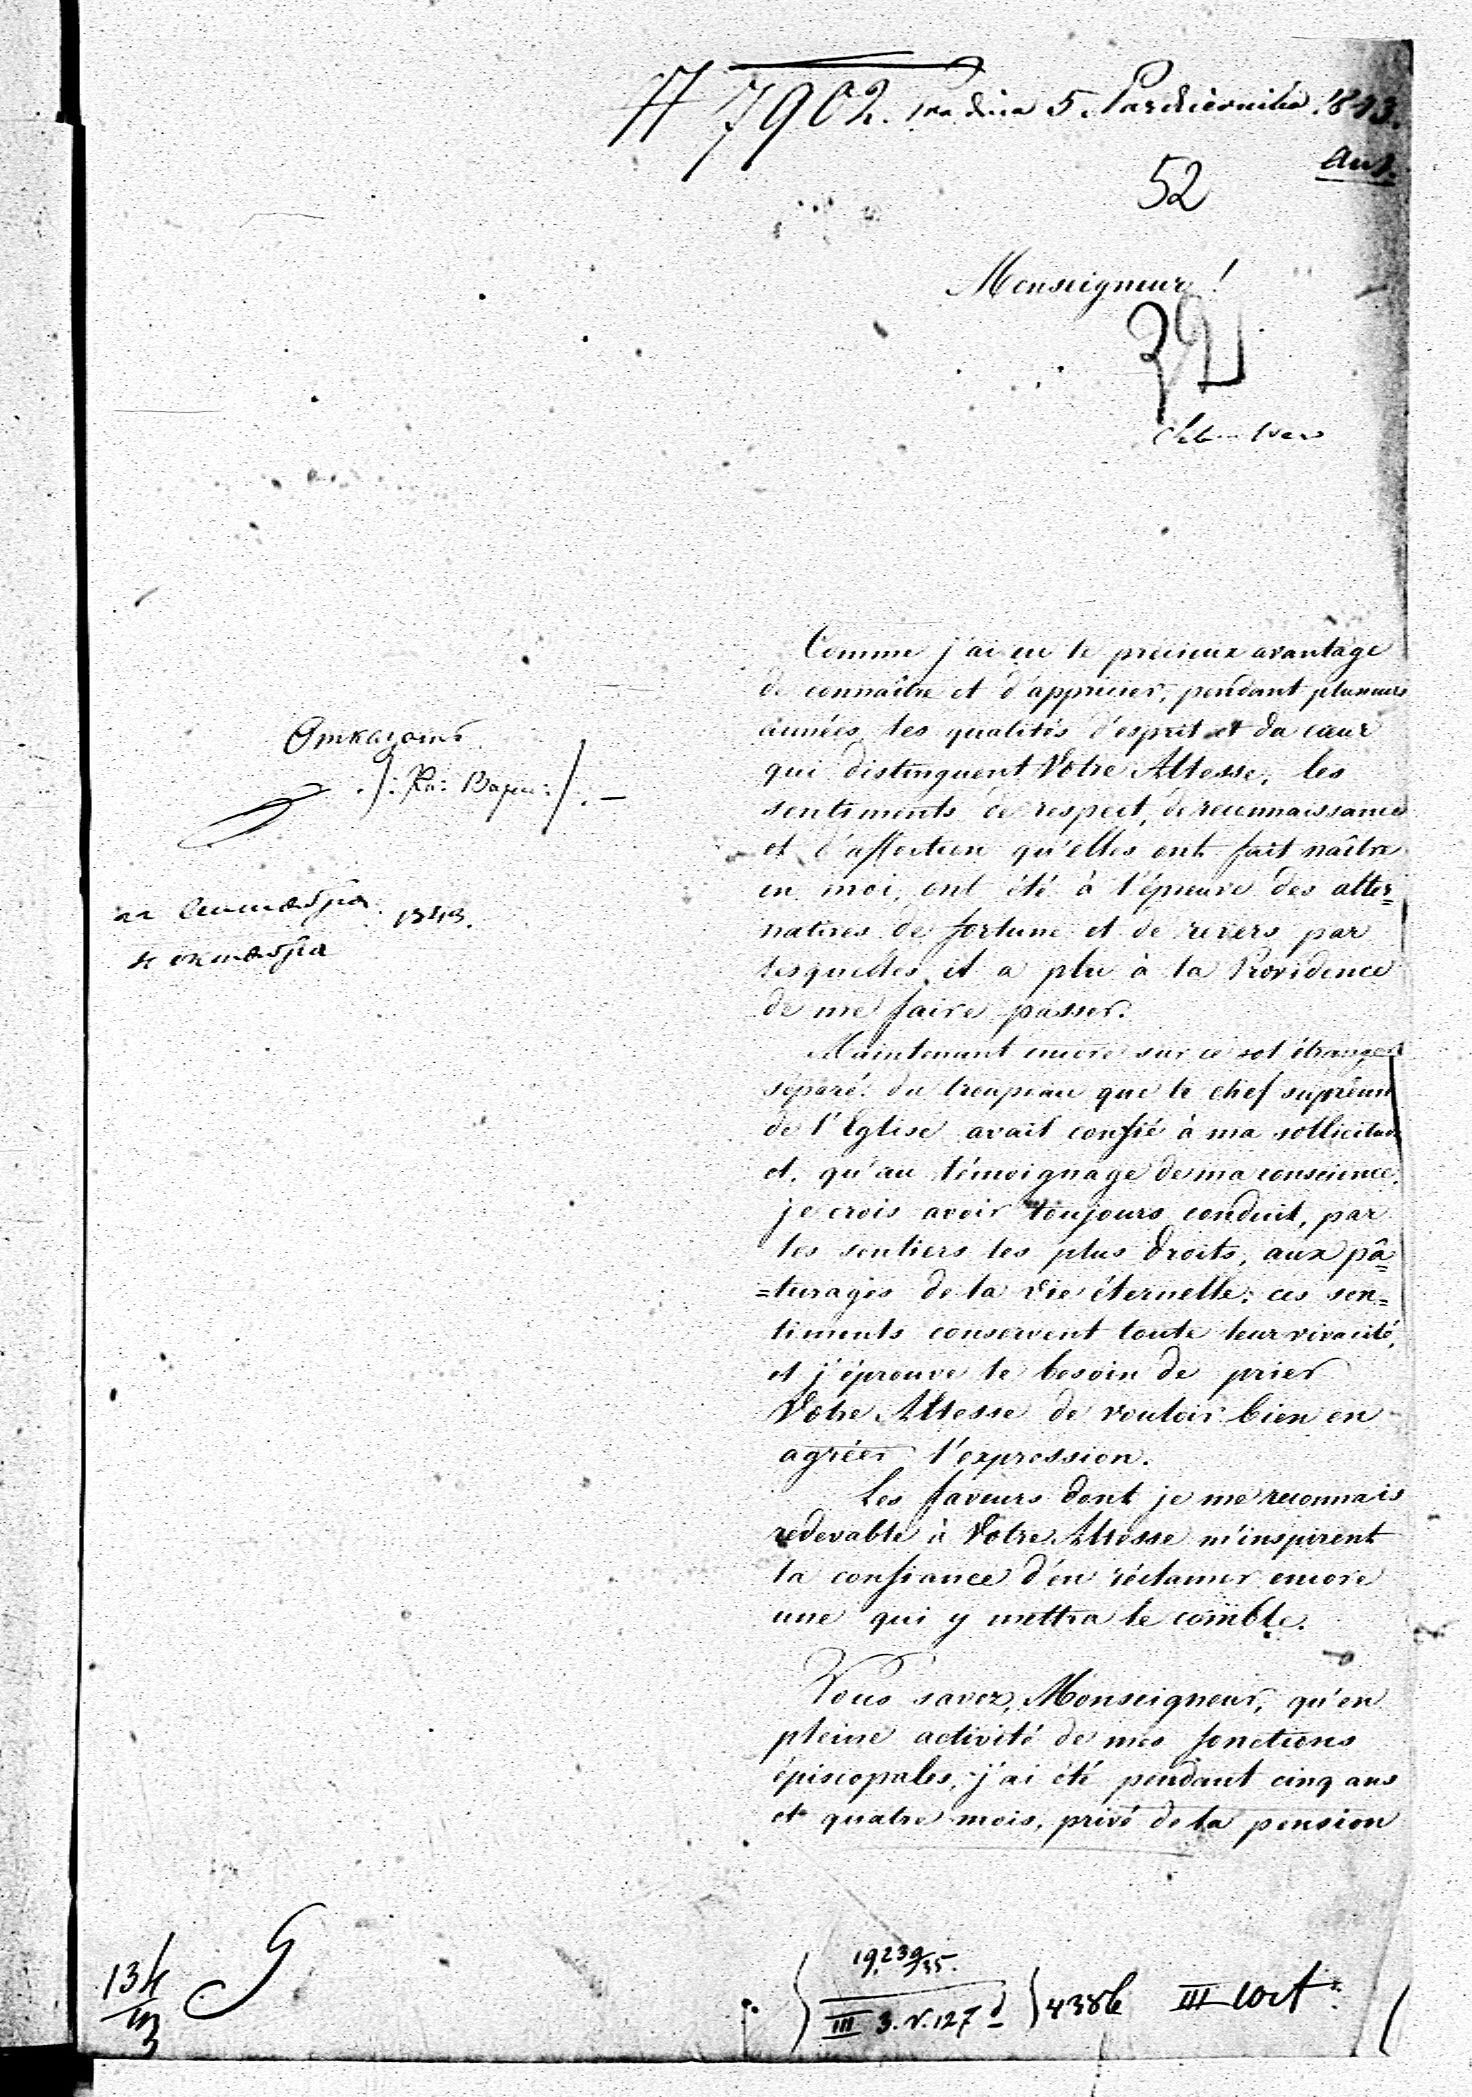 7902. dnia 5 Października 1843.
52
Monseigneur!
Comme j'ai eu le précieux avantage
de connaître et d'apprécier, pendant plusieurs
années, les qualités d'esprit et du cœur
qui distinguent Votre Altesse, les
sentiments de respect, de reconnaissance
et d'affection qu'elles ont fait naître
en moi, ont été à l'épreuve des alter=
natives de fortune et de revers par
lesquelles il a plu à la Providence
de me faire passer.
Maintenant encore sur ce sol étranger
séparé du troupeau que le chef suprême
de l'Eglise avait confié à ma sollicitude
et, qu'au témoignage de ma conscience,
je crois avoir toujours conduit, par
les sentiers les plus droits, aux pâ=
=turages de la vie éternelle: ces sen=
timents conservent toute leur vivacité,
et j'éprouve le besoin de prier
Votre Altesse de vouloir bien en
agréer l'expression.
Les faveurs dont je me reconnais
redevable à Votre Altesse m'inspirent
la confiance d'en réclamer encore
une qui y mettra le comble.
Vous savez, Monseigneur, qu'en
pleine activité de mes fonctions
épiscopales, j'ai été pendant cinq ans
et quatre mois, privé de la pension
Отказать
/: Кн: Варш: /. —
сентября 1843.
октября
134
19,239/35.
III 3. v. 127 d
4386 III